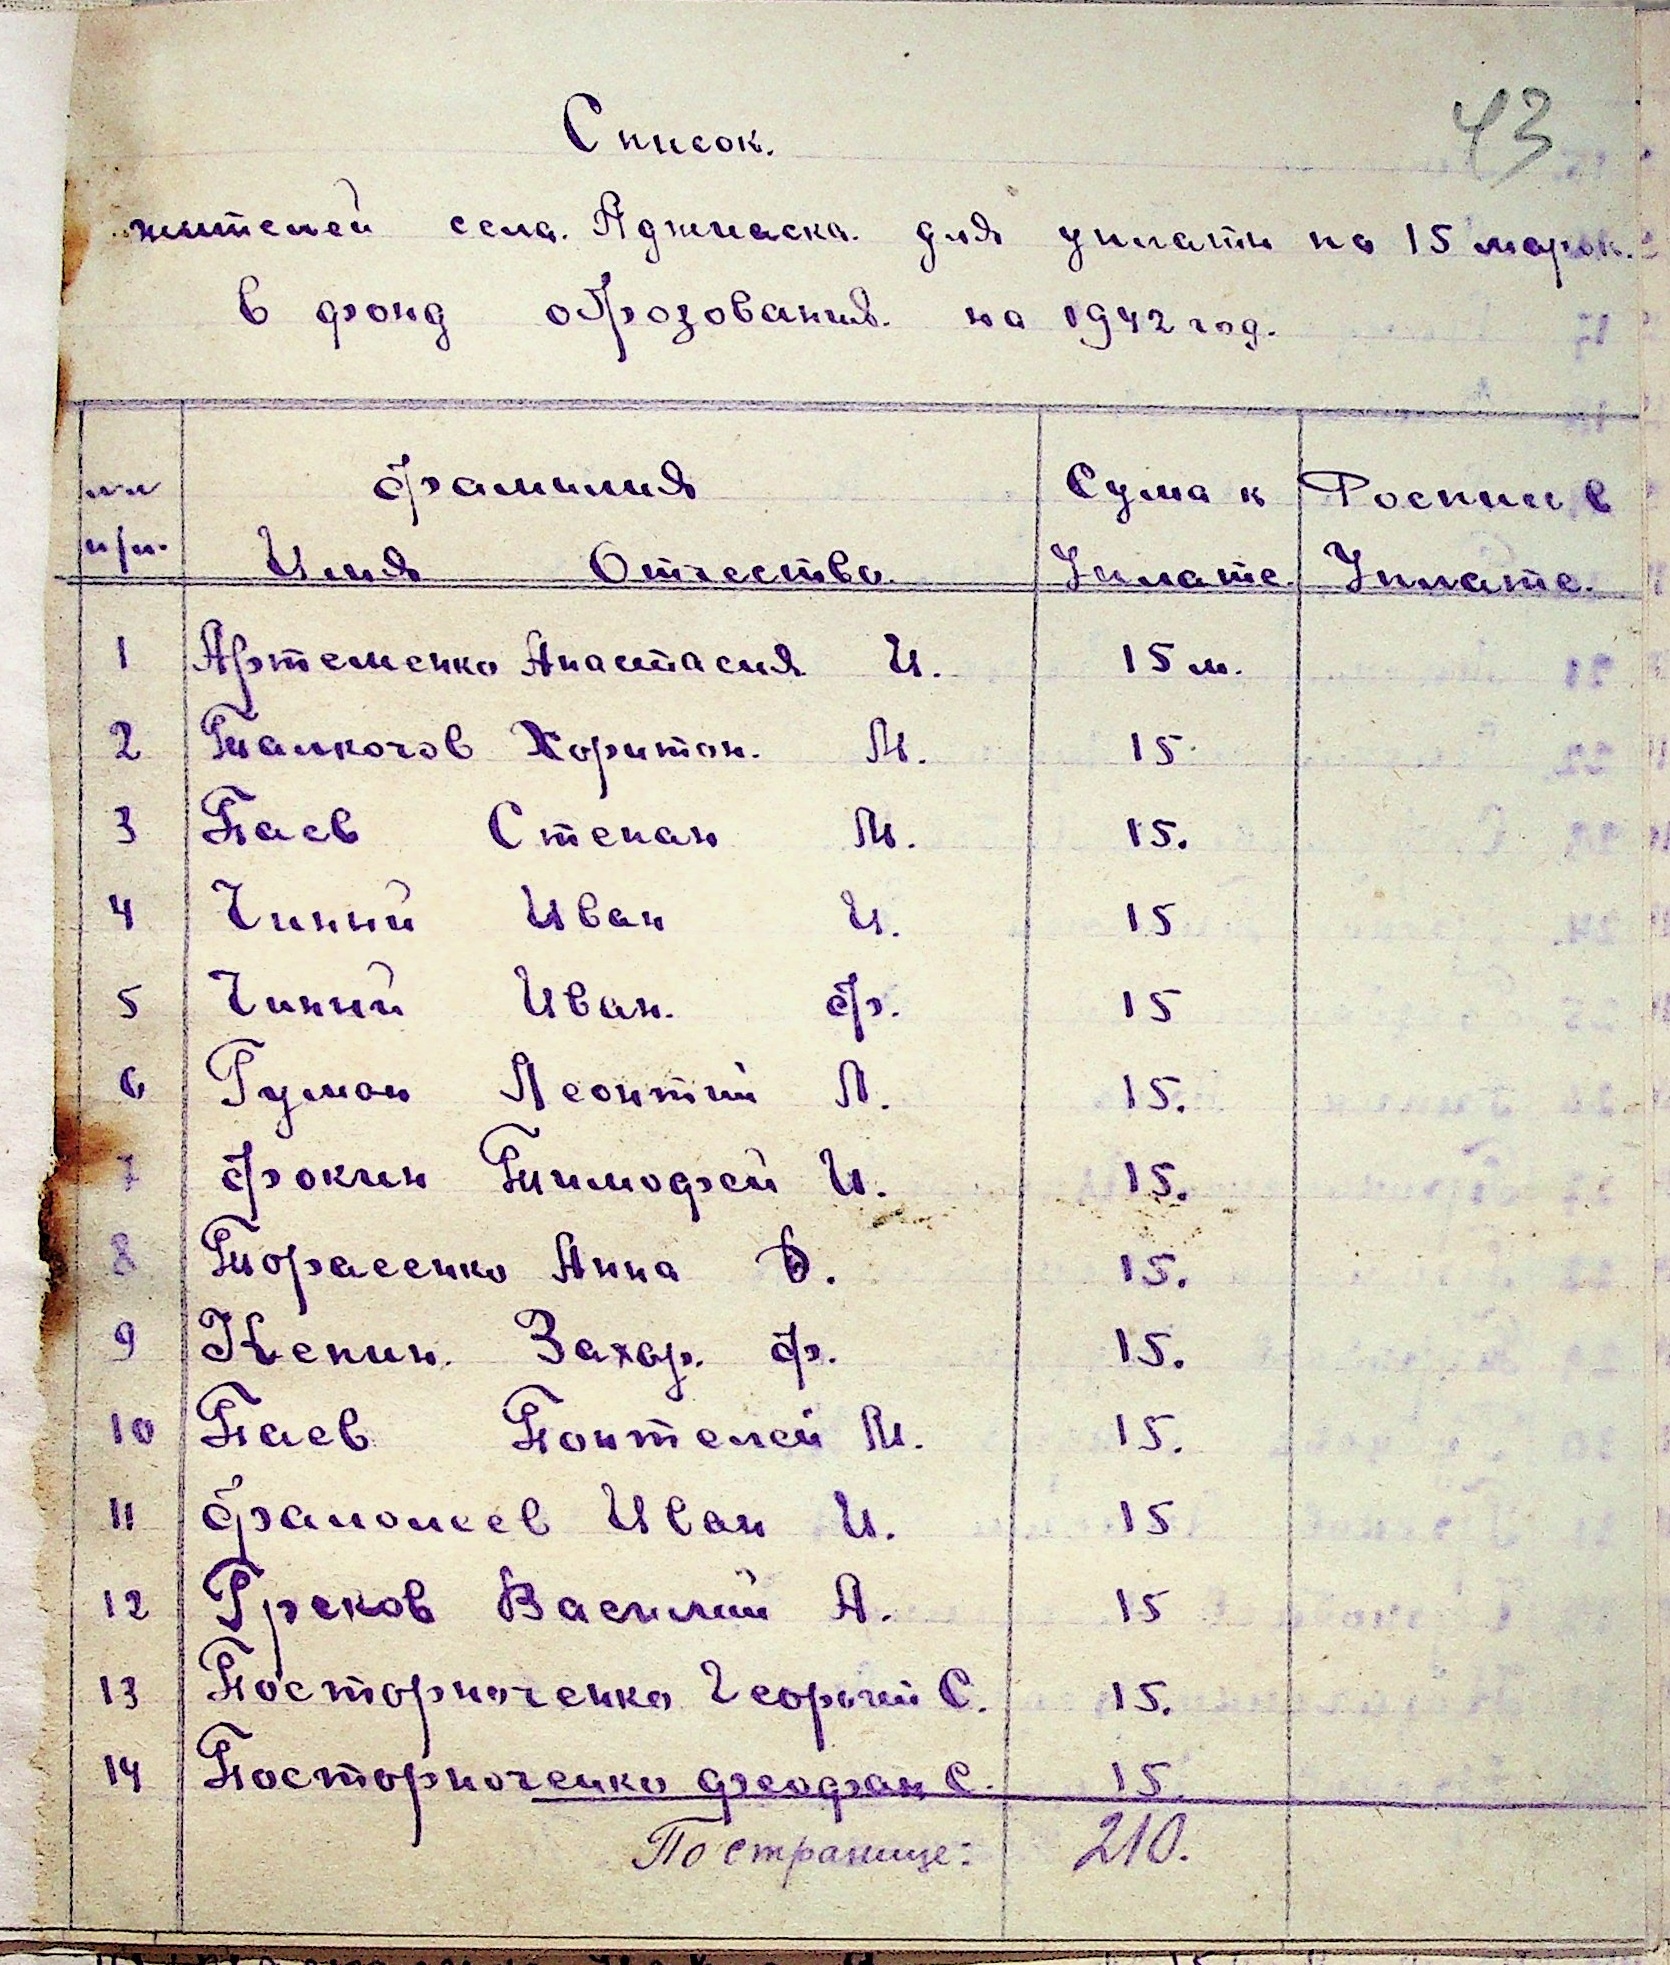 43
Список.
жителей села. Аджиаска. для уплати по 15 марок.
в фонд образования. на 1942 год.
Фамилия Сума к Роспись в
п/п. Имя Отчество. Уплате. Уплате.
1 Артеменко Анастасия И. 15 м.
2 Талкочов Харитон. М. 15
3 Баев Степан М. 15.
4 Чиний Иван И. 15
5 Чиний Иван. Ф. 15
6 Гуман Леонтий Л. 15.
7 Фокин Тимофей И. 15.
8 Торасенко Анна Д. 15.
9 Кепин. Захар. Ф. 15.
10 Баев Понтелей М. 15.
11 Фаломеев Иван И. 15
12 Греков Василий А. 15
13 Посторноченко Георгий С. 15.
14 Посторноченко феофан С. 15.
По странице: 210.